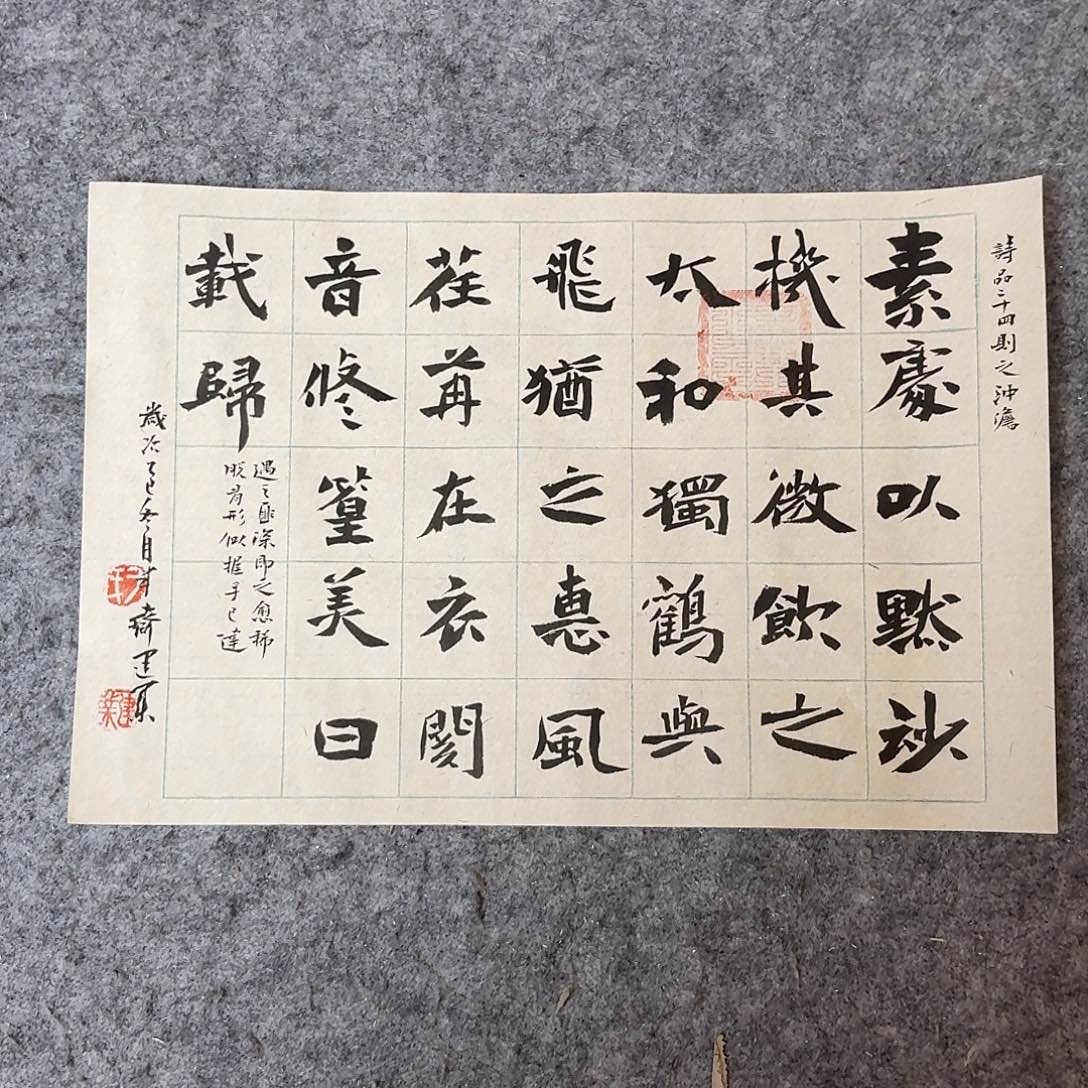 詩品二十四則之沖澹
素處以默妙
機其微飲之
太和獨鶴與
飛猶之惠風
荏苒在衣閱
音修篁美曰
載歸
遇之匪深即之愈稀
脫有形似握手已違
歲次乙巳冬月